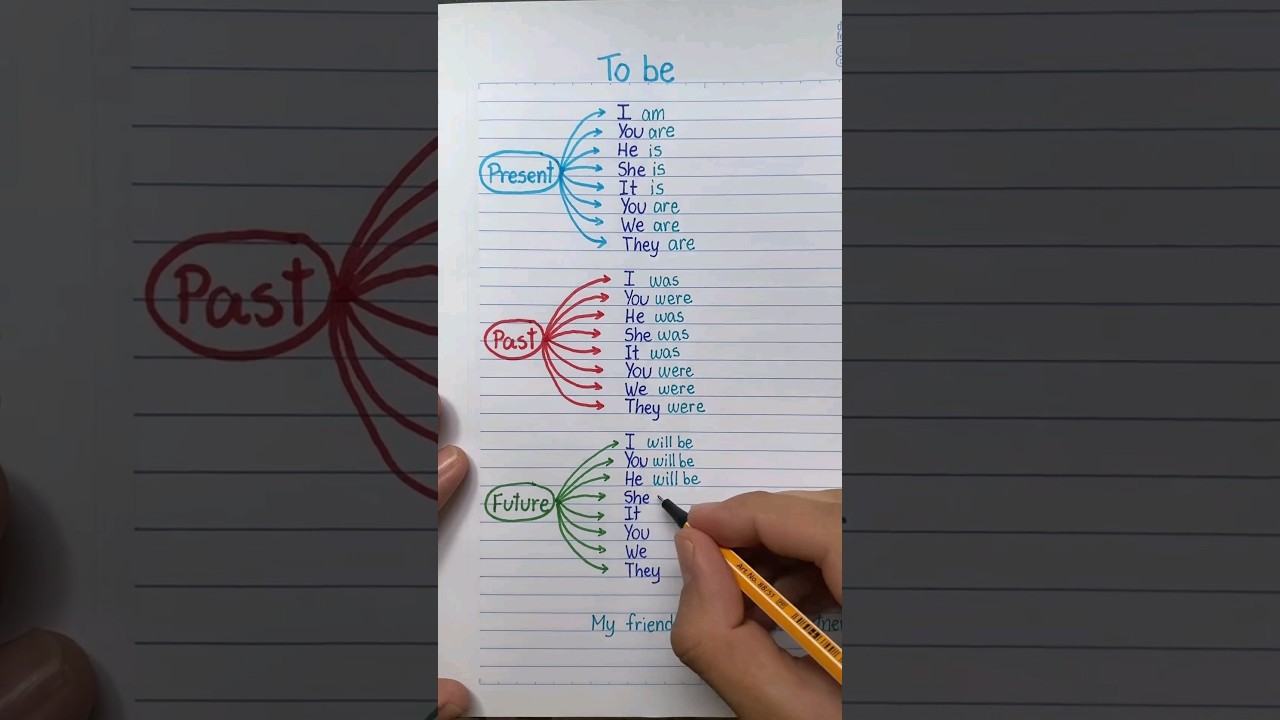 To be
Present
I am
You are
He is
She is
It is
You are
We are
They are
Past
I was
You were
He was
She was
It was
You were
We were
They were
Future
I will be
You will be
He will be
She
It
You
We
They
My friend
Past